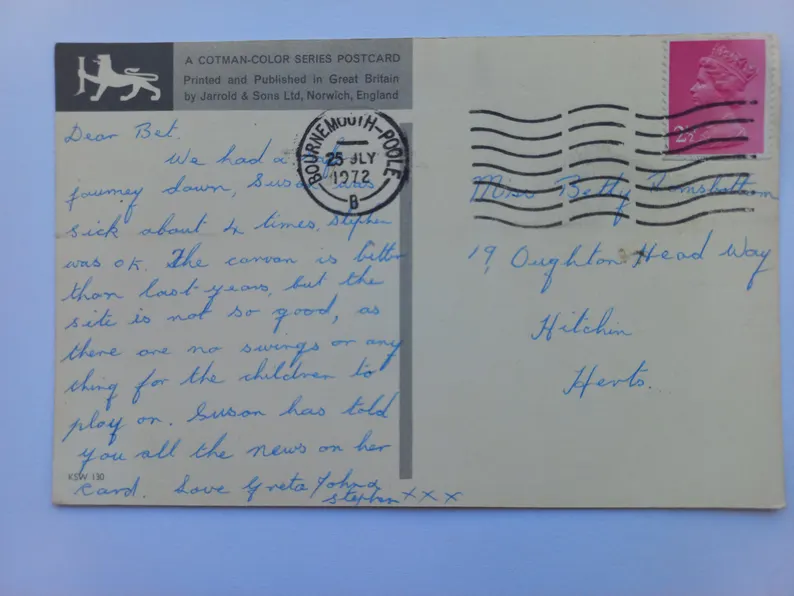 A COTMAN-COLOR SERIES POSTCARD
Printed and Published in Great Britain
by Jarrold & Sons Ltd, Norwich, England
BOURNEMOUTH-POOLE
25 JLY
1972
B
2½
Dear Bet.
We had a
journey down, Susan was
sick about 4 times, Stephen
was ok. The carvan is better
than last years, but the
site is not so good, as
there are no swings or any
thing for the children to
play on. Susan has told
you all the news on her
card. Love Greta John &
Stephen xxx
KSW 130
Miss Betty Ramsbottom
19, Oughton Head Way
Hitchin
Herts.